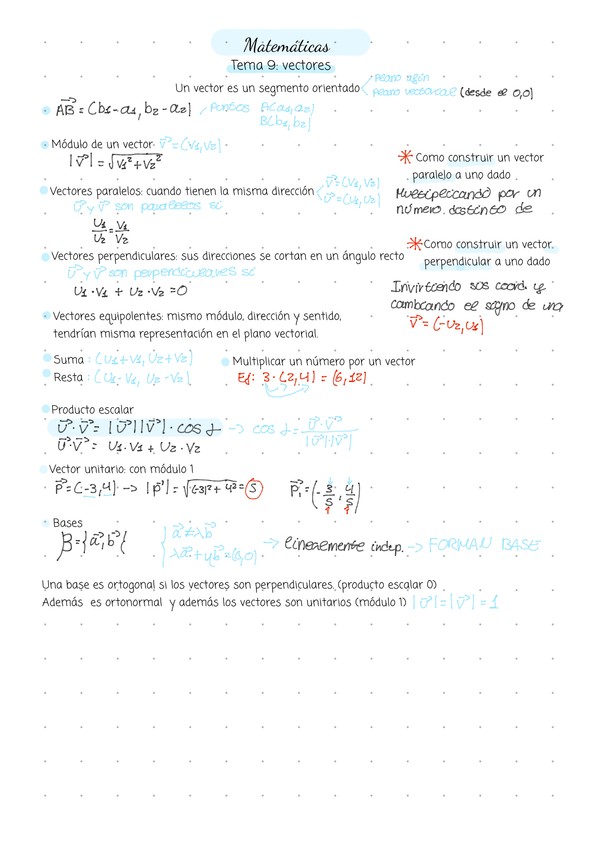 Matemáticas
Tema 9: vectores
Un vector es un segmento orientado
plano vectorial (desde el 0,0)
AB = (b1-a1, b2-a2) puntos A(a1,a2)
B(b1,b2)
Módulo de un vector V = (V1,V2)
|V| = √V1²+V2²
* Como construir un vector
paralelo a uno dado
Multiplicando por un
número distinto de
Vectores paralelos: cuando tienen la misma dirección V=(V1,V2)
U=(U1,U2)
U y V son paralelos si
U1/U2 = V1/V2
* Como construir un vector
perpendicular a uno dado
Vectores perpendiculares: sus direcciones se cortan en un ángulo recto
U y V son perpendiculares si
U1·V1 + U2·V2 = 0
cambiando el signo de una
V = (-U2,U1)
Vectores equipolentes: mismo módulo, dirección y sentido,
tendrían misma representación en el plano vectorial.
Suma: (U1+V1, U2+V2)
Resta: (U1-V1, U2-V2)
Multiplicar un número por un vector
Ej: 3·(2,4) = (6,12)
Producto escalar
U·V = |U||V|·cos α -> cos α = U·V/|U|·|V|
U·V = U1·V1 + U2·V2
Vector unitario: con módulo 1
P = (-3,4) -> |P| = √(-3)²+4² = 5 P1 = (-3/5, 4/5)
Bases
B = {a,b} a ≠ λb
λa + μb = (0,0) -> linealmente indep. -> FORMAN BASE
Una base es ortogonal si los vectores son perpendiculares. (producto escalar 0)
Además es ortonormal y además los vectores son unitarios (módulo 1) |U| = |V| = 1